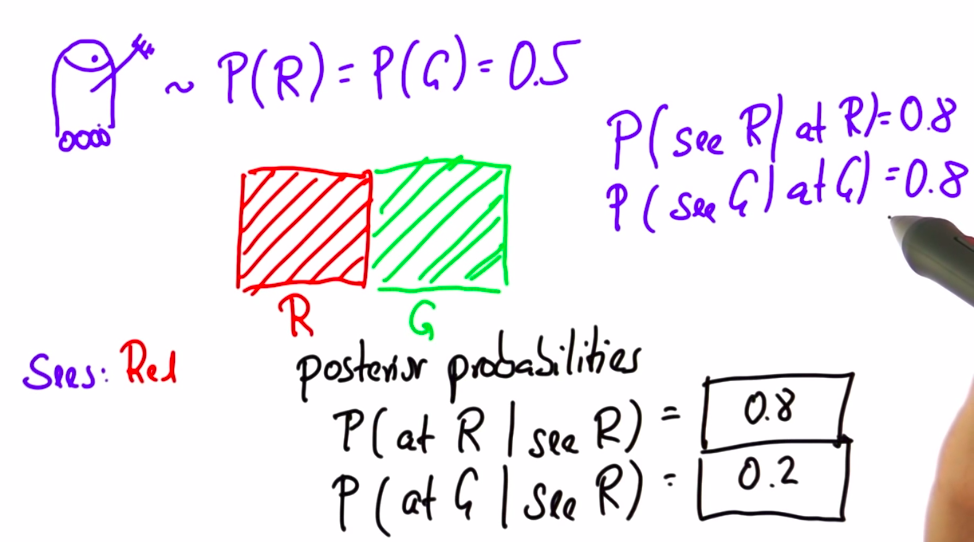 ~ P(R) = P(G) = 0.5
P(see R | at R) = 0.8
P(see G | at G) = 0.8
R G
Sees: Red
posterior probabilities
P(at R | see R) = 0.8
P(at G | see R) = 0.2